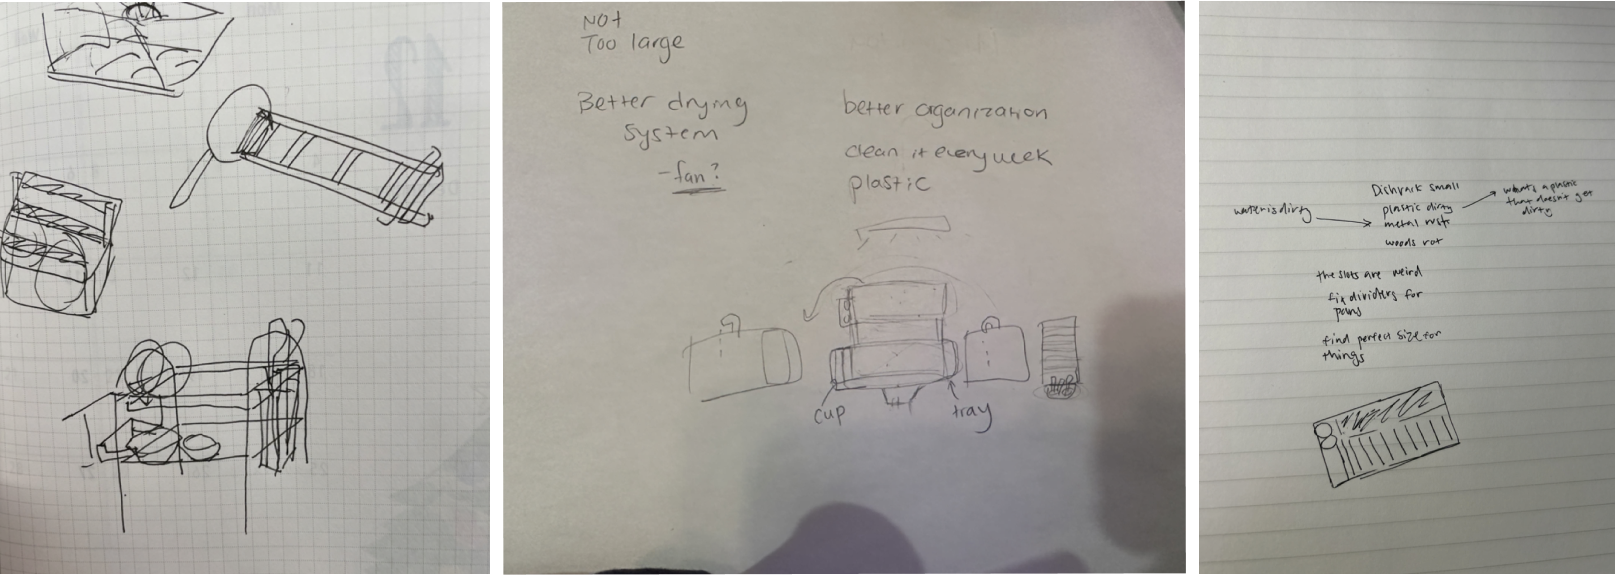 Not
Too large
Better drying
system
-fan?
better organization
clean it every week
plastic
cup
tray
Dishrack small
plastic dirty
metal rusts
woods rot
water is dirty
what's a plastic
that doesn't get
dirty
the slots are weird
fix dividers for
pans
find perfect size for
things